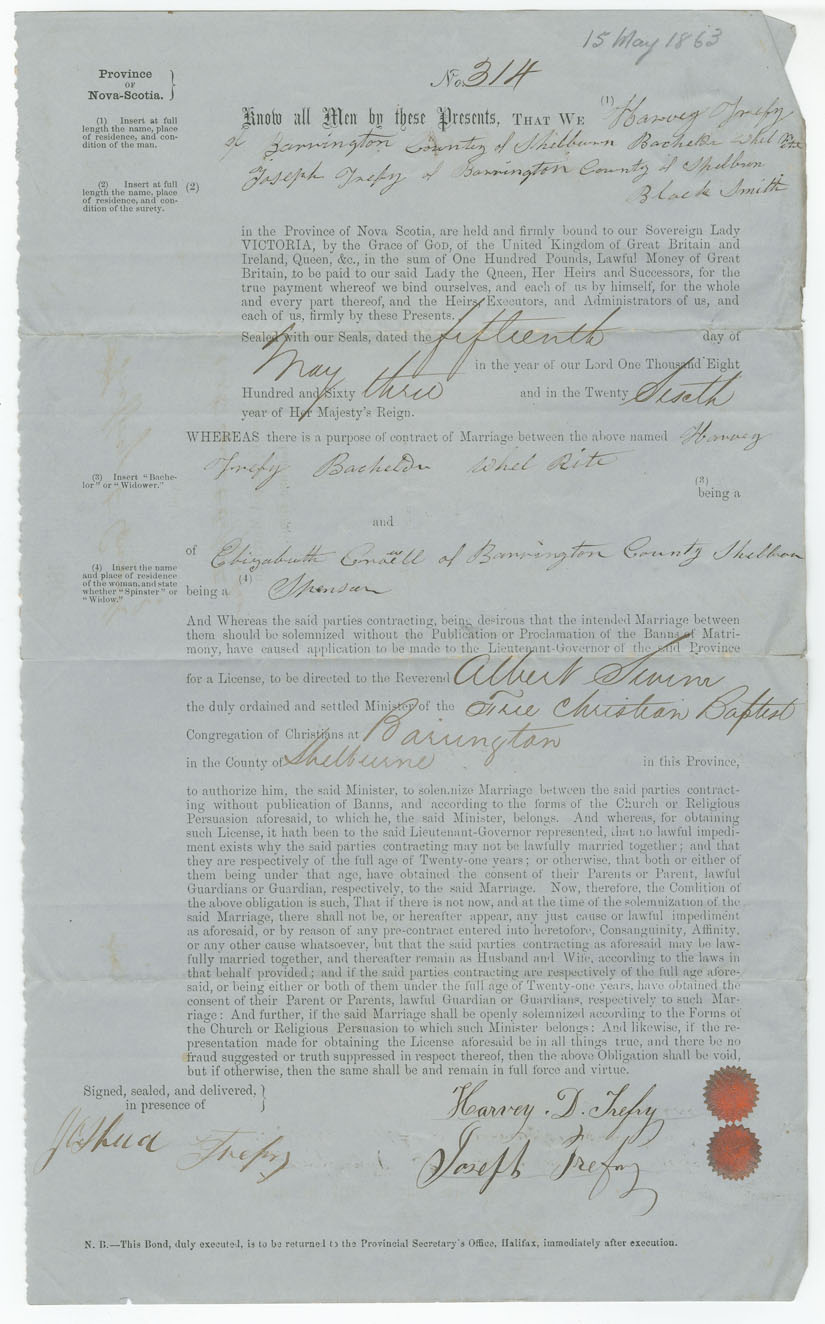 15 May 1863
No. 314
Province
OF
Nova-Scotia.
(1) Insert at full
length the name, place
of residence, and con-
dition of the man.
Know all Men by these Presents, THAT WE (1) Harvey Trefy
of Barrington County of Shelburn Bacheldr Whel Rite
(2) Insert at full
length the name, place
of residence, and con-
dition of the surety.
(2) Joseph Trefy of Barrington County of Shelburn
Black Smith
in the Province of Nova Scotia, are held and firmly bound to our Sovereign Lady
VICTORIA, by the Grace of GOD, of the United Kingdom of Great Britain and
Ireland, Queen, &c., in the sum of One Hundred Pounds, Lawful Money of Great
Britain, to be paid to our said Lady the Queen, Her Heirs and Successors, for the
true payment whereof we bind ourselves, and each of us by himself, for the whole
and every part thereof, and the Heirs, Executors, and Administrators of us, and
each of us, firmly by these Presents.
Sealed with our Seals, dated the fifteenth day of
May in the year of our Lord One Thousand Eight
Hundred and Sixty three and in the Twenty Sixth
year of Her Majesty's Reign.
WHEREAS there is a purpose of contract of Marriage between the above named Harvey
Trefy Bacheldr Whel Rite
(3) Insert "Bache-
lor" or "Widower."
(3)
being a
and
of Elizabeth of Barrington County Shelburn
(4) Insert the name
and place of residence
of the woman, and state
whether "Spinster" or
"Widow."
being a (4)
And Whereas the said parties contracting, being desirous that the intended Marriage between
them should be solemnized without the Publication or Proclamation of the Banns of Matri-
mony, have caused application to be made to the Lieutenant-Governor of the said Province
for a License, to be directed to the Reverend Albert Swim
the duly ordained and settled Minister of the Free Christian Baptist
Congregation of Christians at Barrington
in the County of Shelburne in this Province,
to authorize him, the said Minister, to solemnize Marriage between the said parties contract-
ing without publication of Banns, and according to the forms of the Church or Religious
Persuasion aforesaid, to which he, the said Minister, belongs. And whereas, for obtaining
such License, it hath been to the said Lieutenant-Governor represented, that no lawful impedi-
ment exists why the said parties contracting may not be lawfully married together; and that
they are respectively of the full age of Twenty-one years; or otherwise, that both or either of
them being under that age, have obtained the consent of their Parents or Parent, lawful
Guardians or Guardian, respectively, to the said Marriage. Now, therefore, the Condition of
the above obligation is such, That if there is not now, and at the time of the solemnization of the
said Marriage, there shall not be, or hereafter appear, any just cause or lawful impediment
as aforesaid, or by reason of any pre-contract entered into heretofore, Consanguinity, Affinity,
or any other cause whatsoever, but that the said parties contracting as aforesaid may be law-
fully married together, and thereafter remain as Husband and Wife, according to the laws in
that behalf provided; and if the said parties contracting are respectively of the full age afore-
said, or being either or both of them under the full age of Twenty-one years, have obtained the
consent of their Parent or Parents, lawful Guardian or Guardians, respectively to such Mar-
riage: And further, if the said Marriage shall be openly solemnized according to the Forms of
the Church or Religious Persuasion to which such Minister belongs: And likewise, if the re-
presentation made for obtaining the License aforesaid be in all things true, and there be no
fraud suggested or truth suppressed in respect thereof, then the above Obligation shall be void,
but if otherwise, then the same shall be and remain in full force and virtue.
Signed, sealed, and delivered,
in presence of
Harvey. D. Trefry
Joshua Trefry
Joseph Trefry
N. B.—This Bond, duly executed, is to be returned to the Provincial Secretary's Office, Halifax, immediately after execution.